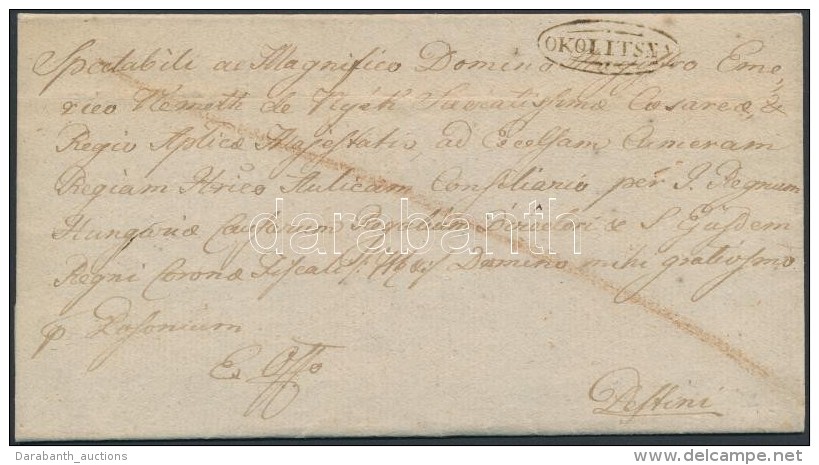 OKOLITSNA
Spectabili ac Magnifico Domino Magistro Eme,
rico Németh de Nyék Sacratissimæ Cæsareæ, &
Regio Aplicæ Majestatis, ad Excelsam Cameram
Regiam Hrico Aulicam Consiliario per I. Regnum
Hungariæ Causarum Regalium Directori & S. Ejusdem
Regni Coronæ Fiscali Domino mihi gratiosmo
p Posonium
Ex Offo
Pestini
darabanth
Darabanth_auctions